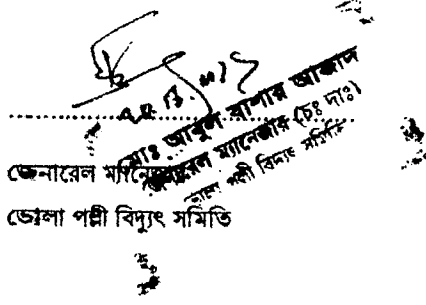 মোঃ আবুল বাশার আজাদ
জেনারেল ম্যানেজার (চঃ দাঃ)
ভোলা পল্লী বিদ্যুৎ সমিতি
জেনারেল ম্যানেজার
ভোলা পল্লী বিদ্যুৎ সমিতি